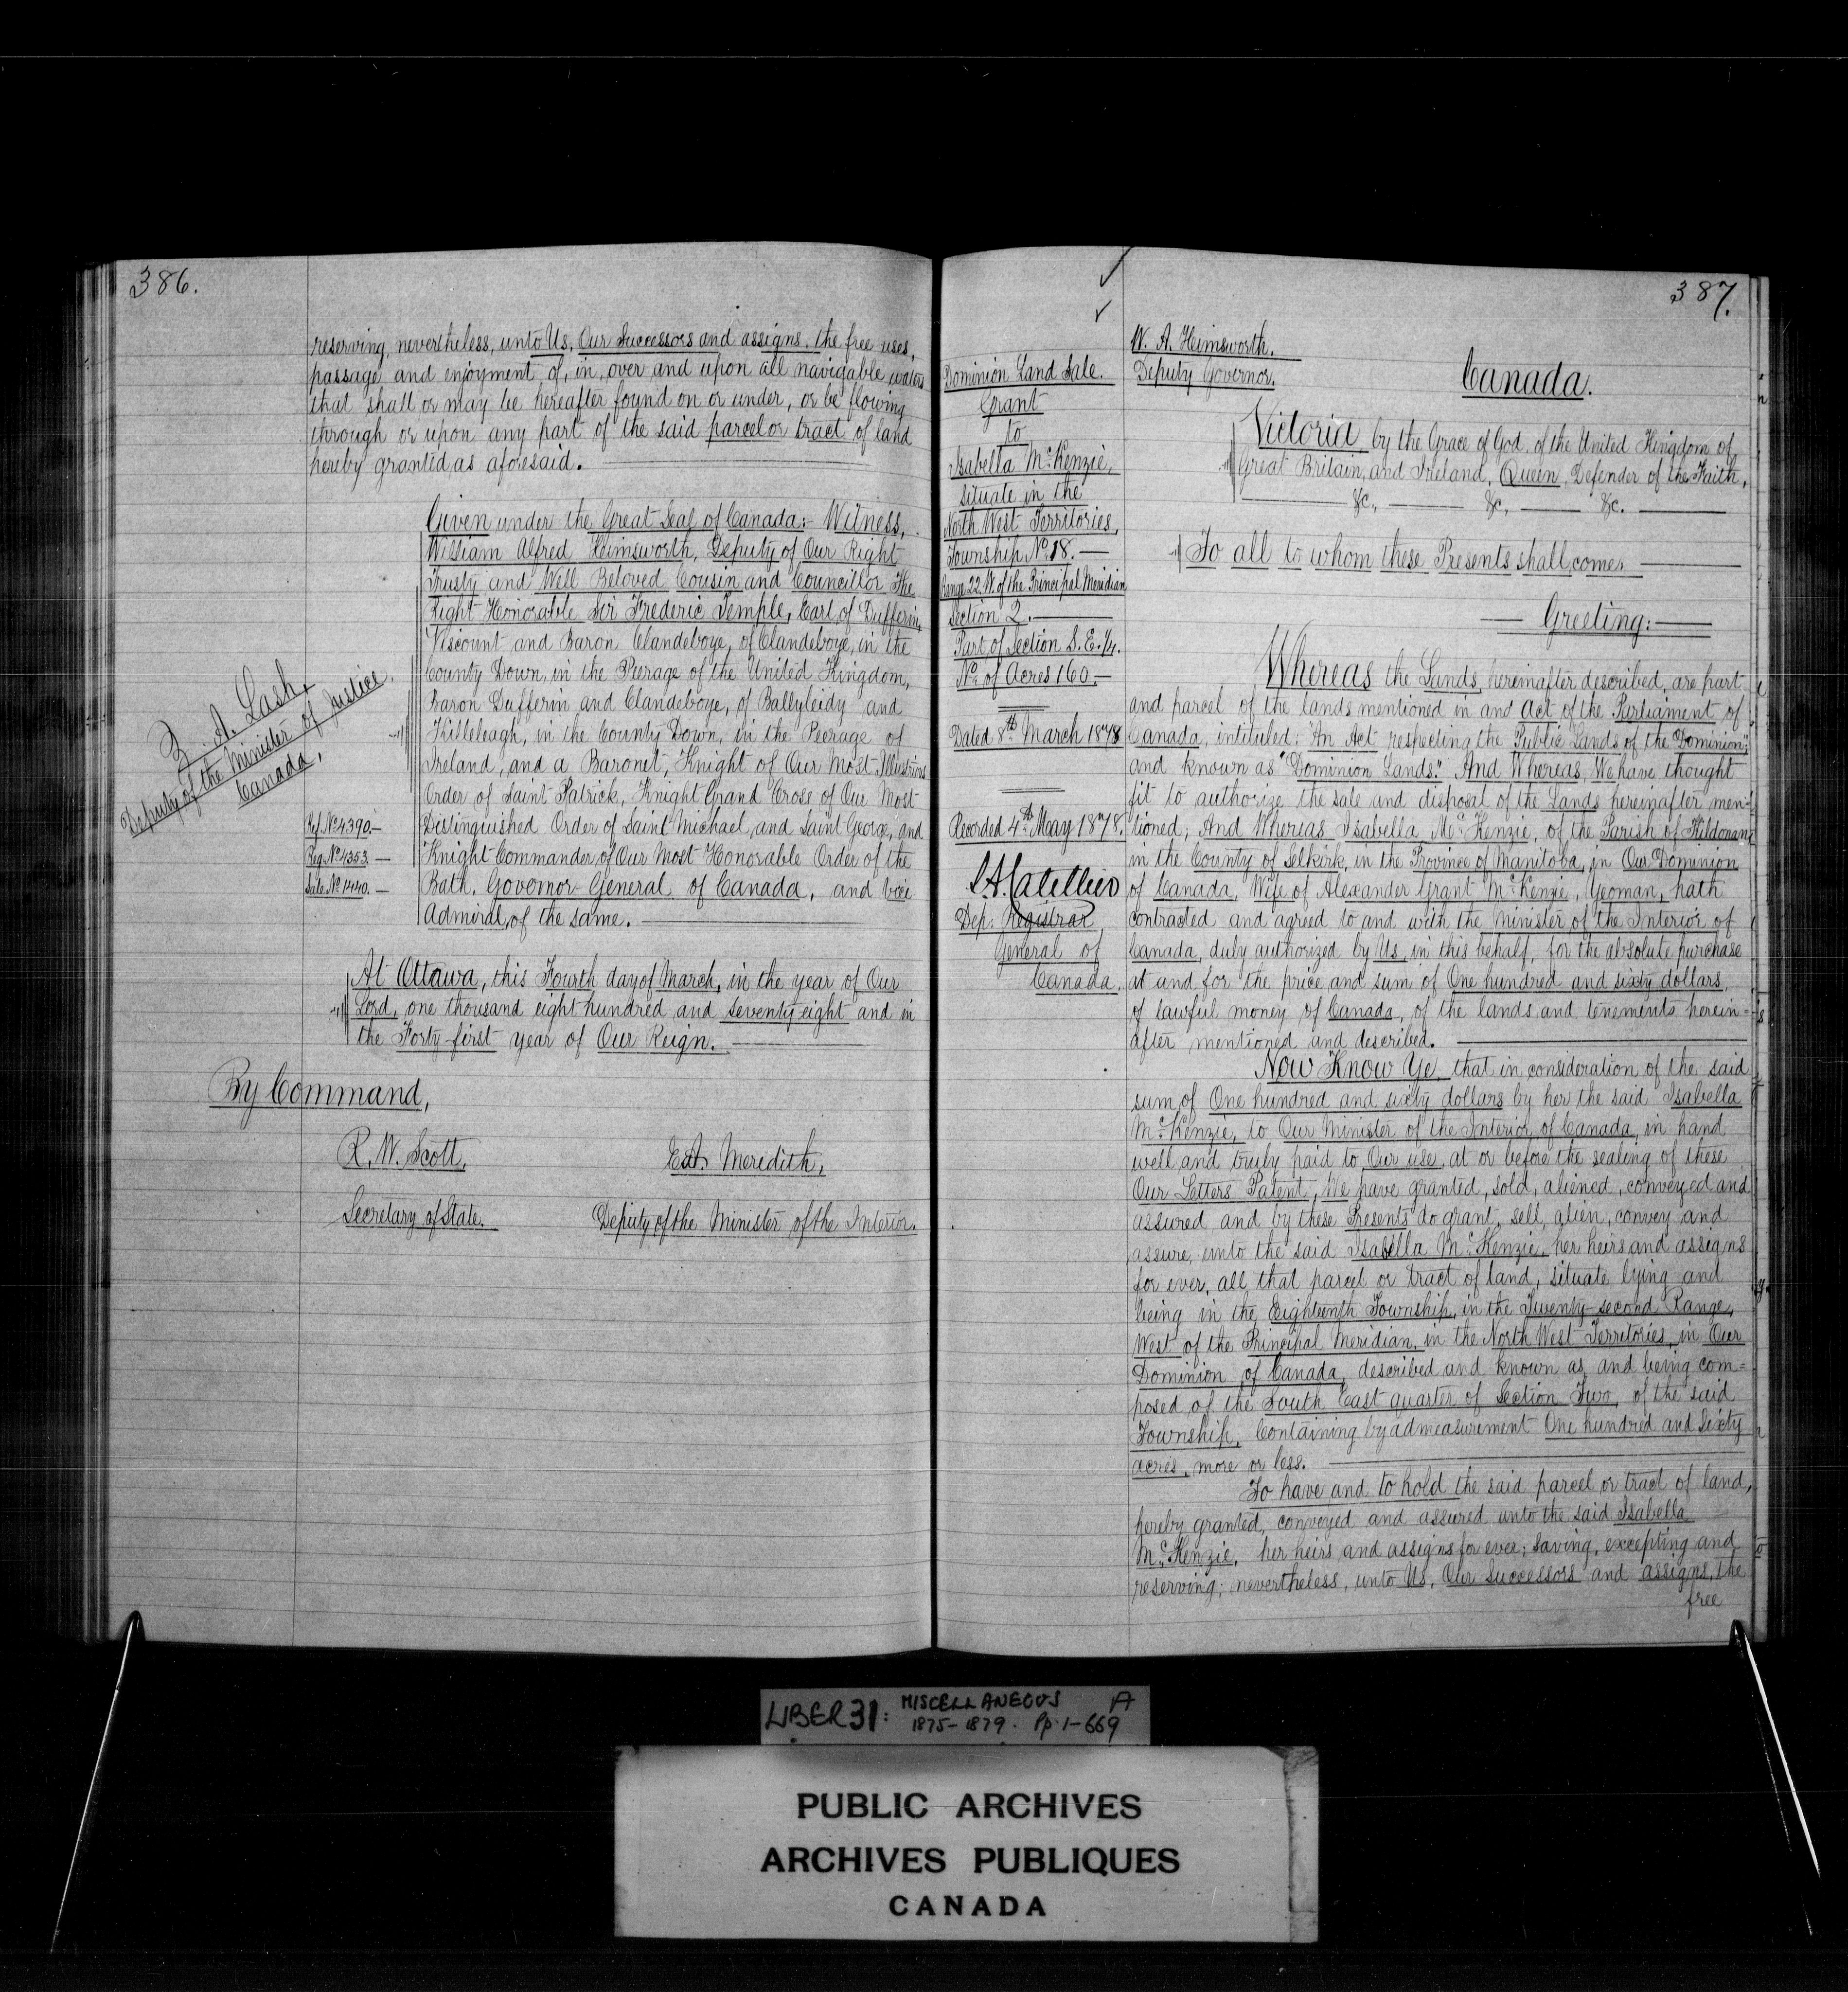 386.
reserving, nevertheless, unto Us, Our Successors and assigns, the free uses,
passage and enjoyment of, in, over and upon all navigable waters
that shall or may be hereafter found on or under, or be flowing
through or upon any part of the said parcel or tract of land
hereby granted, as aforesaid.
Given under the Great Seal of Canada:- Witness,
William Alfred Heimsworth, Deputy of Our Right
Trusty and Well Beloved Cousin and Councillor The
Right Honorable Sir Frederic Temple, Earl of Dufferin,
Viscount and Baron Clandeboye, of Clandeboye, in the
County Down, in the Peerage of the United Kingdom,
Baron Dufferin and Clandeboye, of Ballyleidy and
Killeleagh, in the County Down, in the Peerage of
Ireland, and a Baronet, Knight of Our Most Illustrious
Order of Saint Patrick, Knight Grand Cross of Our Most
Distinguished Order of Saint Michael, and Saint George, and
Knight Commander of Our Most Honorable Order of the
Bath, Governor General of Canada, and Vice
Admiral, of the same.
Z. A. Lash,
Deputy of the Minister of Justice,
Canada,
Ref. No. 4390.-
Reg. No. 4353.-
Sale No. 1440.-
At Ottawa, this Fourth day of March, in the year of Our
Lord, one thousand eight hundred and seventy eight and in
the Forty-first year of Our Reign.
By Command,
R. W. Scott,
Secretary of State.
E. A. Meredith,
Deputy of the Minister of the Interior.
387.
Dominion Land Sale.
Grant
to
Isabella Mc.Kenzie,
situate in the
North West Territories,
Township No. 18.-
Range 22. W. of the Principal Meridian
Section 2.
Part of Section S. E. 1/4.
No. of Acres 160.-
Dated 8th March 1878
Recorded 4th May 1878.
L. A. Catellier
Dep. Registrar
General of
Canada.
W. A. Heimsworth.
Deputy Governor.
Canada.
Victoria by the Grace of God, of the United Kingdom of
Great Britain, and Ireland, Queen, Defender of the Faith,
&c, &c, &c.
To all to whom these Presents shall come,
Greeting:
Whereas the Lands, hereinafter described, are part
and parcel of the lands mentioned in and Act of the Parliament of
Canada, intituled: "An Act respecting the Public Lands of the Dominion";
and known as "Dominion Lands." And Whereas, We have thought
fit to authorize the sale and disposal of the Lands hereinafter men-
tioned; And Whereas Isabella Mc.Kenzie, of the Parish of Kildonan,
in the County of Selkirk, in the Province of Manitoba, in Our Dominion
of Canada, Wife of Alexander Grant Mc.Kenzie, Yeoman, hath
contracted and agreed to and with the Minister of the Interior of
Canada, duly authorized by Us, in this behalf, for the absolute purchase
at and for the price and sum of One hundred and sixty dollars,
of lawful money of Canada, of the lands and tenements herein=
after mentioned and described.
Now Know Ye, that in consideration of the said
sum of One hundred and sixty dollars by her the said Isabella
Mc.Kenzie, to Our Minister of the Interior of Canada, in hand
well and truly paid to Our use, at or before the sealing of these
Our Letters Patent, We have granted, sold, aliened, conveyed and
assured and by these Presents do grant, sell, alien, convey and
assure, unto the said Isabella Mc.Kenzie, her heirs and assigns
for ever, all that parcel or tract of land, situate lying and
being in the Eighteenth Township, in the Twenty-second Range,
West of the Principal Meridian, in the North West Territories, in Our
Dominion of Canada, described and known as, and being com=
posed of the South East quarter of Section Two, of the said
Township, Containing by admeasurement One hundred and Sixty
acres, more or less.
To have and to hold the said parcel or tract of land,
hereby granted, conveyed and assured unto the said Isabella
Mc.Kenzie, her heirs and assigns for ever; saving, excepting and
reserving; nevertheless, unto Us, Our Successors and assigns, the
free
LIBER 31: MISCELLANEOUS A
1875-1879. Pp. 1-669
PUBLIC ARCHIVES
ARCHIVES PUBLIQUES
CANADA